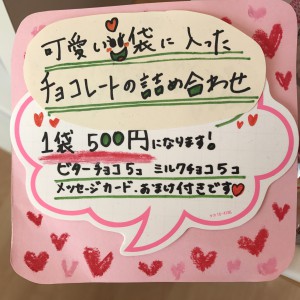 可愛い袋に入った
チョコレートの詰め合わせ
1袋 500円になります!
ビターチョコ5コ ミルクチョコ5コ
メッセージカード、おまけ付きです